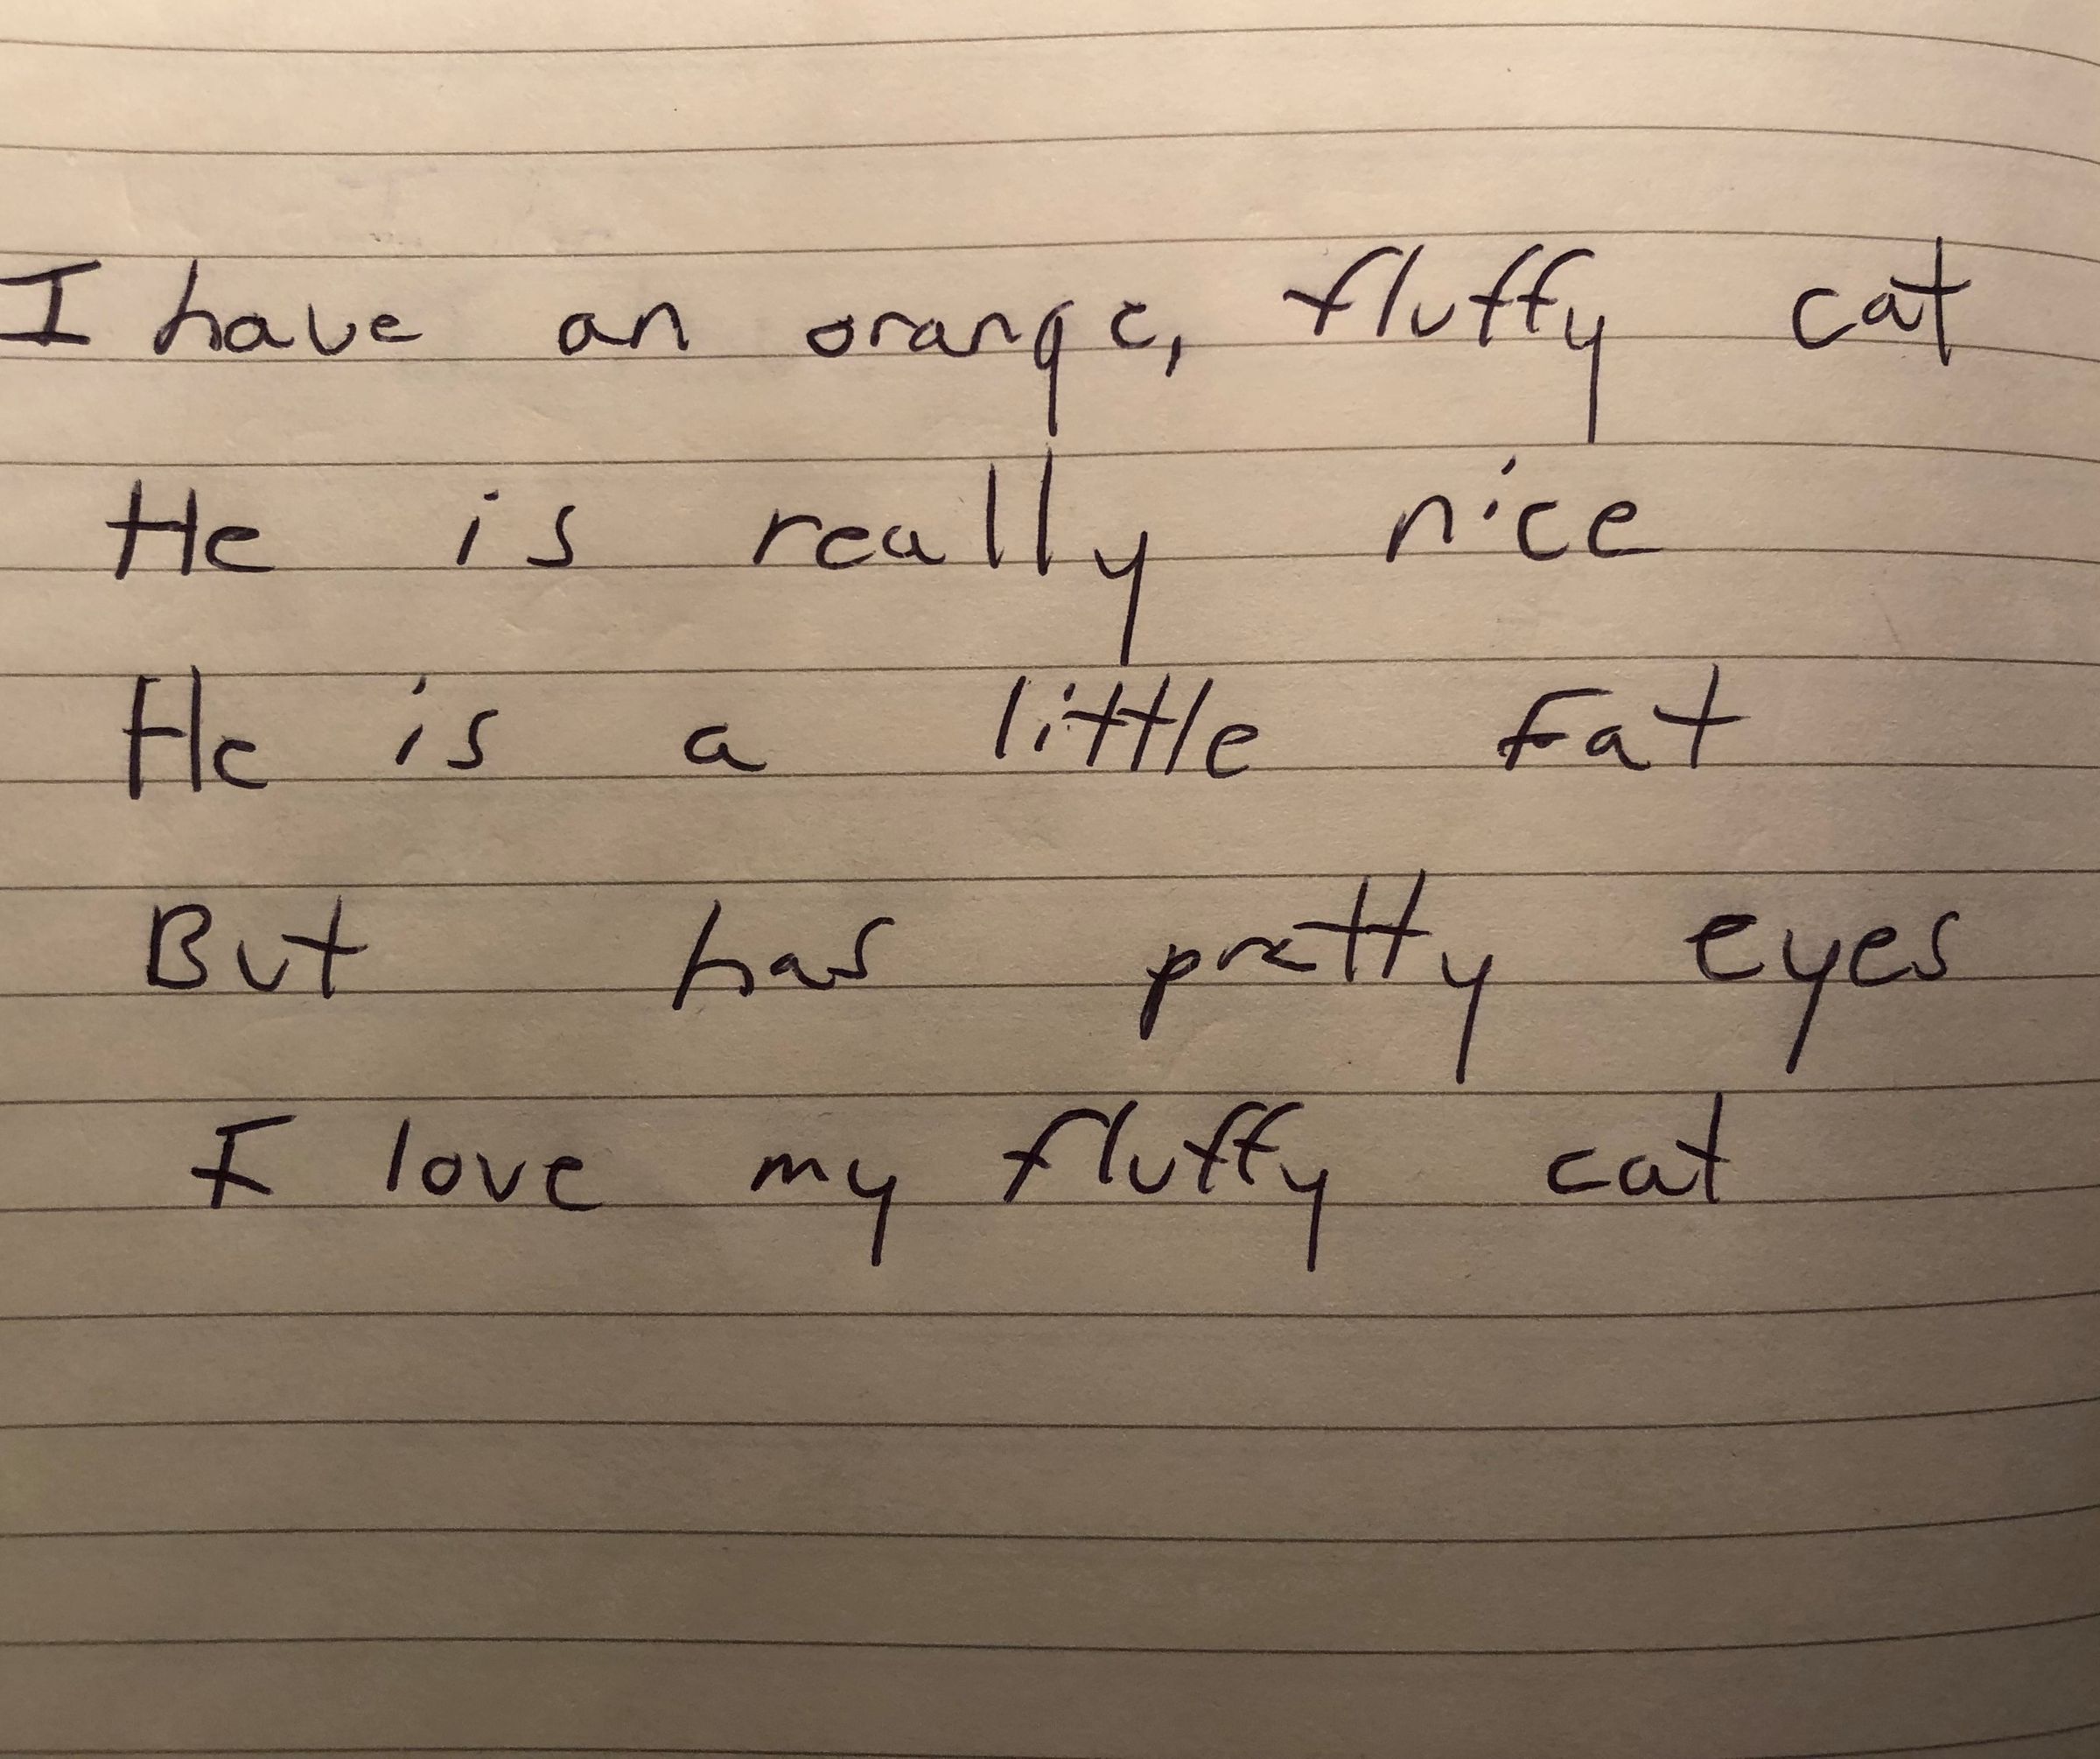 I have an orange, fluffy cat
He is really nice
He is a little fat
But has pretty eyes
I love my fluffy cat